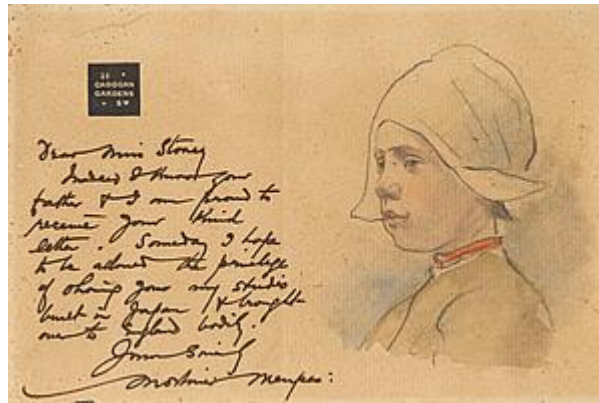 25
CADOGAN
GARDENS
SW
Dear Miss Stoney
Indeed I know your
father & I am proud to
receive your kind
letter. Someday I hope
to be allowed the privilege
of showing your my studio
built in Japan & brought
over to England bodily.
Yours Sincely
Mortimer Menpes: